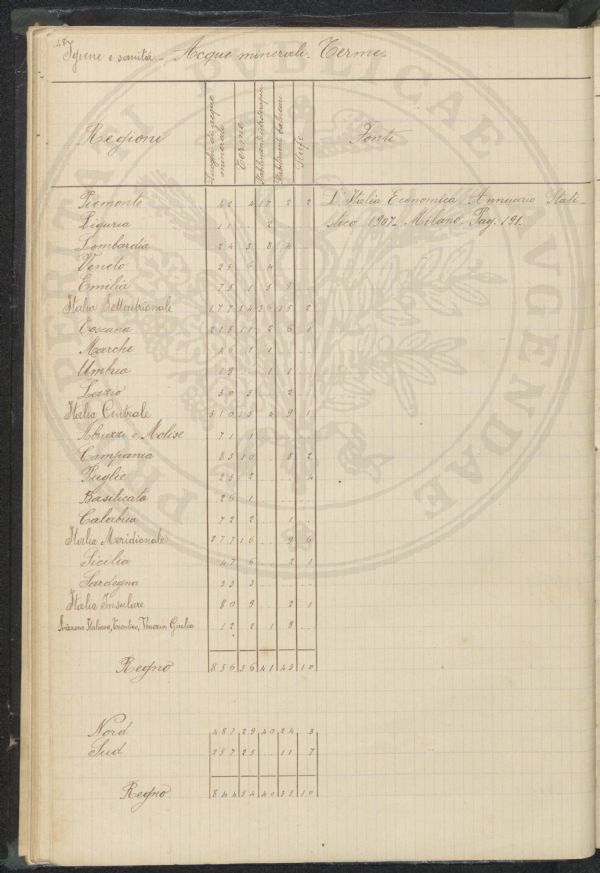 Igiene e sanità - Acque minerali. Terme.
Regioni Luoghi di acque minerali Terme Stabilimenti idroterapici Stabilimenti balneari Stufe Fonti
Piemonte 52 4 17 2 2 L'Italia Economica, Annuario Stati-
Liguria 11 .. 2 .. .. stico 1907 - Milano - Pag. 191.
Lombardia 24 3 8 4 ..
Veneto 25 6 4 .. ..
Emilia 75 1 5 9 ..
Italia Settentrionale 177 14 36 15 2
Toscana 215 11 2 6 1
Marche 46 1 1 .. ..
Umbria 19 .. 1 1 ..
Lazio 30 3 .. 2 ..
Italia Centrale 310 15 4 9 1
Abruzzi e Molise 71 1 .. .. ..
Campania 83 10 .. 8 2
Puglie 25 2 .. .. 4
Basilicata 26 1 .. .. ..
Calabria 72 2 .. 1 ..
Italia Meridionale 277 16 .. 9 6
Sicilia 47 6 .. 2 1
Sardegna 33 3 .. .. ..
Italia Insulare 80 9 .. 2 1
Svizzera Italiana, Trentino, Venezia Giulia 12 2 1 8 ..
Regno 856 56 41 43 10
Nord 487 29 40 24 3
Sud 357 25 .. 11 7
Regno 844 54 40 35 10
PERITATI PUBLICAE AGENDAE